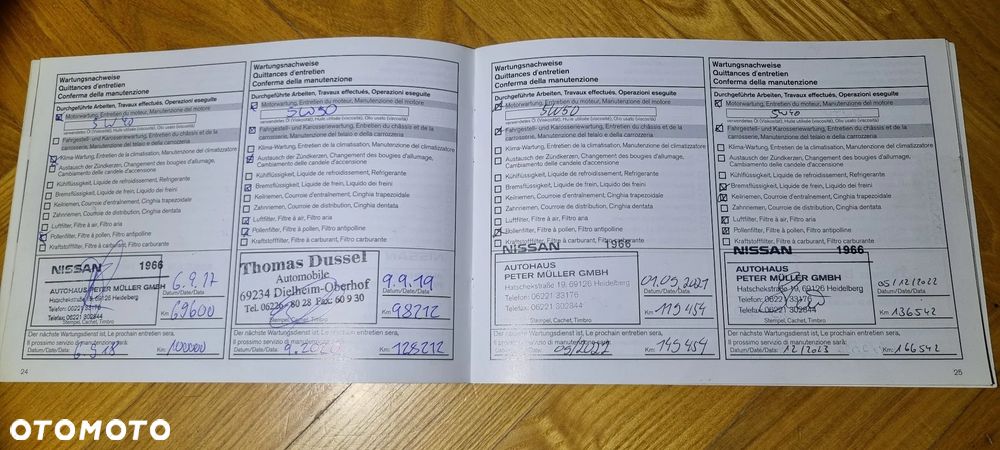 Wartungsnachweise
Quittances d'entretien
Conferma della manutenzione
Durchgeführte Arbeiten, Travaux effectués, Operazioni eseguite
Motorwartung, Entretien du moteur, Manutenzione del motore
5W40
verwendetes Öl (Viskosität), Huile utilisée (viscosité), Olio usato (viscosità)
Fahrgestell- und Karosseriewartung, Entretien du châssis et de la
carrosserie, Manutenzione del telaio e della carrozzeria
Klima-Wartung, Entretien de la climatisation, Manutenzione del climatizzatore
Austausch der Zündkerzen, Changement des bougies d'allumage,
Cambiamento delle candele d'accensione
Kühlflüssigkeit, Liquide de refroidissement, Refrigerante
Bremsflüssigkeit, Liquide de frein, Liquido dei freini
Keilriemen, Courroie d'entraînement, Cinghia trapezoidale
Zahnriemen, Courroie de distribution, Cinghia dentata
Luftfilter, Filtre à air, Filtro aria
Pollenfilter, Filtre à pollen, Filtro antipolline
Kraftstofffilter, Filtre à carburant, Filtro carburante
NISSAN 1966
AUTOHAUS PETER MÜLLER GMBH
Hatschekstraße 19, 69126 Heidelberg
Telefon: 06221 33176
Telefax: 06221 302844
Stempel, Cachet, Timbro
6.9.17
Datum/Date/Data
Km: 69600
Der nächste Wartungsdienst ist, Le prochain entretien sera,
Il prossimo servizio di manutenzione sarà:
Datum/Date/Data: 6.9.18 Km: 100000
24
Wartungsnachweise
Quittances d'entretien
Conferma della manutenzione
Durchgeführte Arbeiten, Travaux effectués, Operazioni eseguite
Motorwartung, Entretien du moteur, Manutenzione del motore
5W30
verwendetes Öl (Viskosität), Huile utilisée (viscosité), Olio usato (viscosità)
Fahrgestell- und Karosseriewartung, Entretien du châssis et de la
carrosserie, Manutenzione del telaio e della carrozzeria
Klima-Wartung, Entretien de la climatisation, Manutenzione del climatizzatore
Austausch der Zündkerzen, Changement des bougies d'allumage,
Cambiamento delle candele d'accensione
Kühlflüssigkeit, Liquide de refroidissement, Refrigerante
Bremsflüssigkeit, Liquide de frein, Liquido dei freini
Keilriemen, Courroie d'entraînement, Cinghia trapezoidale
Zahnriemen, Courroie de distribution, Cinghia dentata
Luftfilter, Filtre à air, Filtro aria
Pollenfilter, Filtre à pollen, Filtro antipolline
Kraftstofffilter, Filtre à carburant, Filtro carburante
Thomas Dussel
Automobile
69234 Dielheim-Oberhof
Tel. 06226 - 80 28 Fax: 60 9 30
Stempel, Cachet, Timbro
9.9.19
Datum/Date/Data
Km: 98212
Der nächste Wartungsdienst ist, Le prochain entretien sera,
Il prossimo servizio di manutenzione sarà:
Datum/Date/Data: 9.2020 Km: 128212
Wartungsnachweise
Quittances d'entretien
Conferma della manutenzione
Durchgeführte Arbeiten, Travaux effectués, Operazioni eseguite
Motorwartung, Entretien du moteur, Manutenzione del motore
5W30
verwendetes Öl (Viskosität), Huile utilisée (viscosité), Olio usato (viscosità)
Fahrgestell- und Karosseriewartung, Entretien du châssis et de la
carrosserie, Manutenzione del telaio e della carrozzeria
Klima-Wartung, Entretien de la climatisation, Manutenzione del climatizzatore
Austausch der Zündkerzen, Changement des bougies d'allumage,
Cambiamento delle candele d'accensione
Kühlflüssigkeit, Liquide de refroidissement, Refrigerante
Bremsflüssigkeit, Liquide de frein, Liquido dei freini
Keilriemen, Courroie d'entraînement, Cinghia trapezoidale
Zahnriemen, Courroie de distribution, Cinghia dentata
Luftfilter, Filtre à air, Filtro aria
Pollenfilter, Filtre à pollen, Filtro antipolline
Kraftstofffilter, Filtre à carburant, Filtro carburante
NISSAN 1966
AUTOHAUS
PETER MÜLLER GMBH
Hatschekstraße 19, 69126 Heidelberg
Telefon: 06221 33176
Telefax: 06221 302844
Stempel, Cachet, Timbro
01.05.2021
Datum/Date/Data
Km: 115454
Der nächste Wartungsdienst ist, Le prochain entretien sera,
Il prossimo servizio di manutenzione sarà:
Datum/Date/Data: 05/2022 Km: 145454
Wartungsnachweise
Quittances d'entretien
Conferma della manutenzione
Durchgeführte Arbeiten, Travaux effectués, Operazioni eseguite
Motorwartung, Entretien du moteur, Manutenzione del motore
5W40
verwendetes Öl (Viskosität), Huile utilisée (viscosité), Olio usato (viscosità)
Fahrgestell- und Karosseriewartung, Entretien du châssis et de la
carrosserie, Manutenzione del telaio e della carrozzeria
Klima-Wartung, Entretien de la climatisation, Manutenzione del climatizzatore
Austausch der Zündkerzen, Changement des bougies d'allumage,
Cambiamento delle candele d'accensione
Kühlflüssigkeit, Liquide de refroidissement, Refrigerante
Bremsflüssigkeit, Liquide de frein, Liquido dei freini
Keilriemen, Courroie d'entraînement, Cinghia trapezoidale
Zahnriemen, Courroie de distribution, Cinghia dentata
Luftfilter, Filtre à air, Filtro aria
Pollenfilter, Filtre à pollen, Filtro antipolline
Kraftstofffilter, Filtre à carburant, Filtro carburante
NISSAN 1966
AUTOHAUS
PETER MÜLLER GMBH
Hatschekstraße 19, 69126 Heidelberg
Telefon: 06221 33176
Telefax: 06221 302844
Stempel, Cachet, Timbro
05/12/2022
Datum/Date/Data
Km: 136542
Der nächste Wartungsdienst ist, Le prochain entretien sera,
Il prossimo servizio di manutenzione sarà:
Datum/Date/Data: 12/2023 Km: 166542
25
OTOMOTO